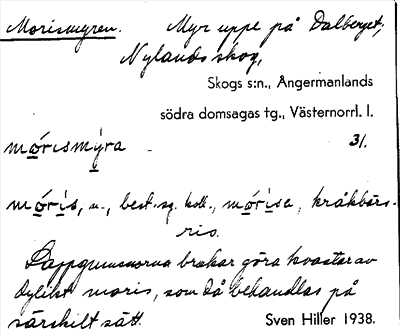 Morismyren. Myr uppe på Dalberget,
Nylands skog,
Skogs s:n., Ångermanlands
södra domsagas tg., Västernorrl. l.
mórismýra 31.
mórìs, n., best. sg. koll., mórìsa, kråkbärs-
ris.
Lappgummorna brukar göra kvastar av
dylikt moris, som då behandlas på
särskilt sätt. Sven Hiller 1938.